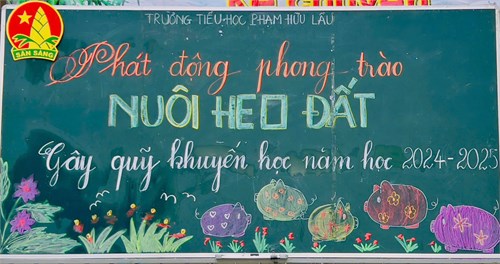 TRƯỜNG TIỂU HỌC PHẠM HỮU LẦU
SẴN SÀNG
Phát động phong trào
NUÔI HEO ĐẤT
Gây quỹ khuyến học năm học 2024-2025